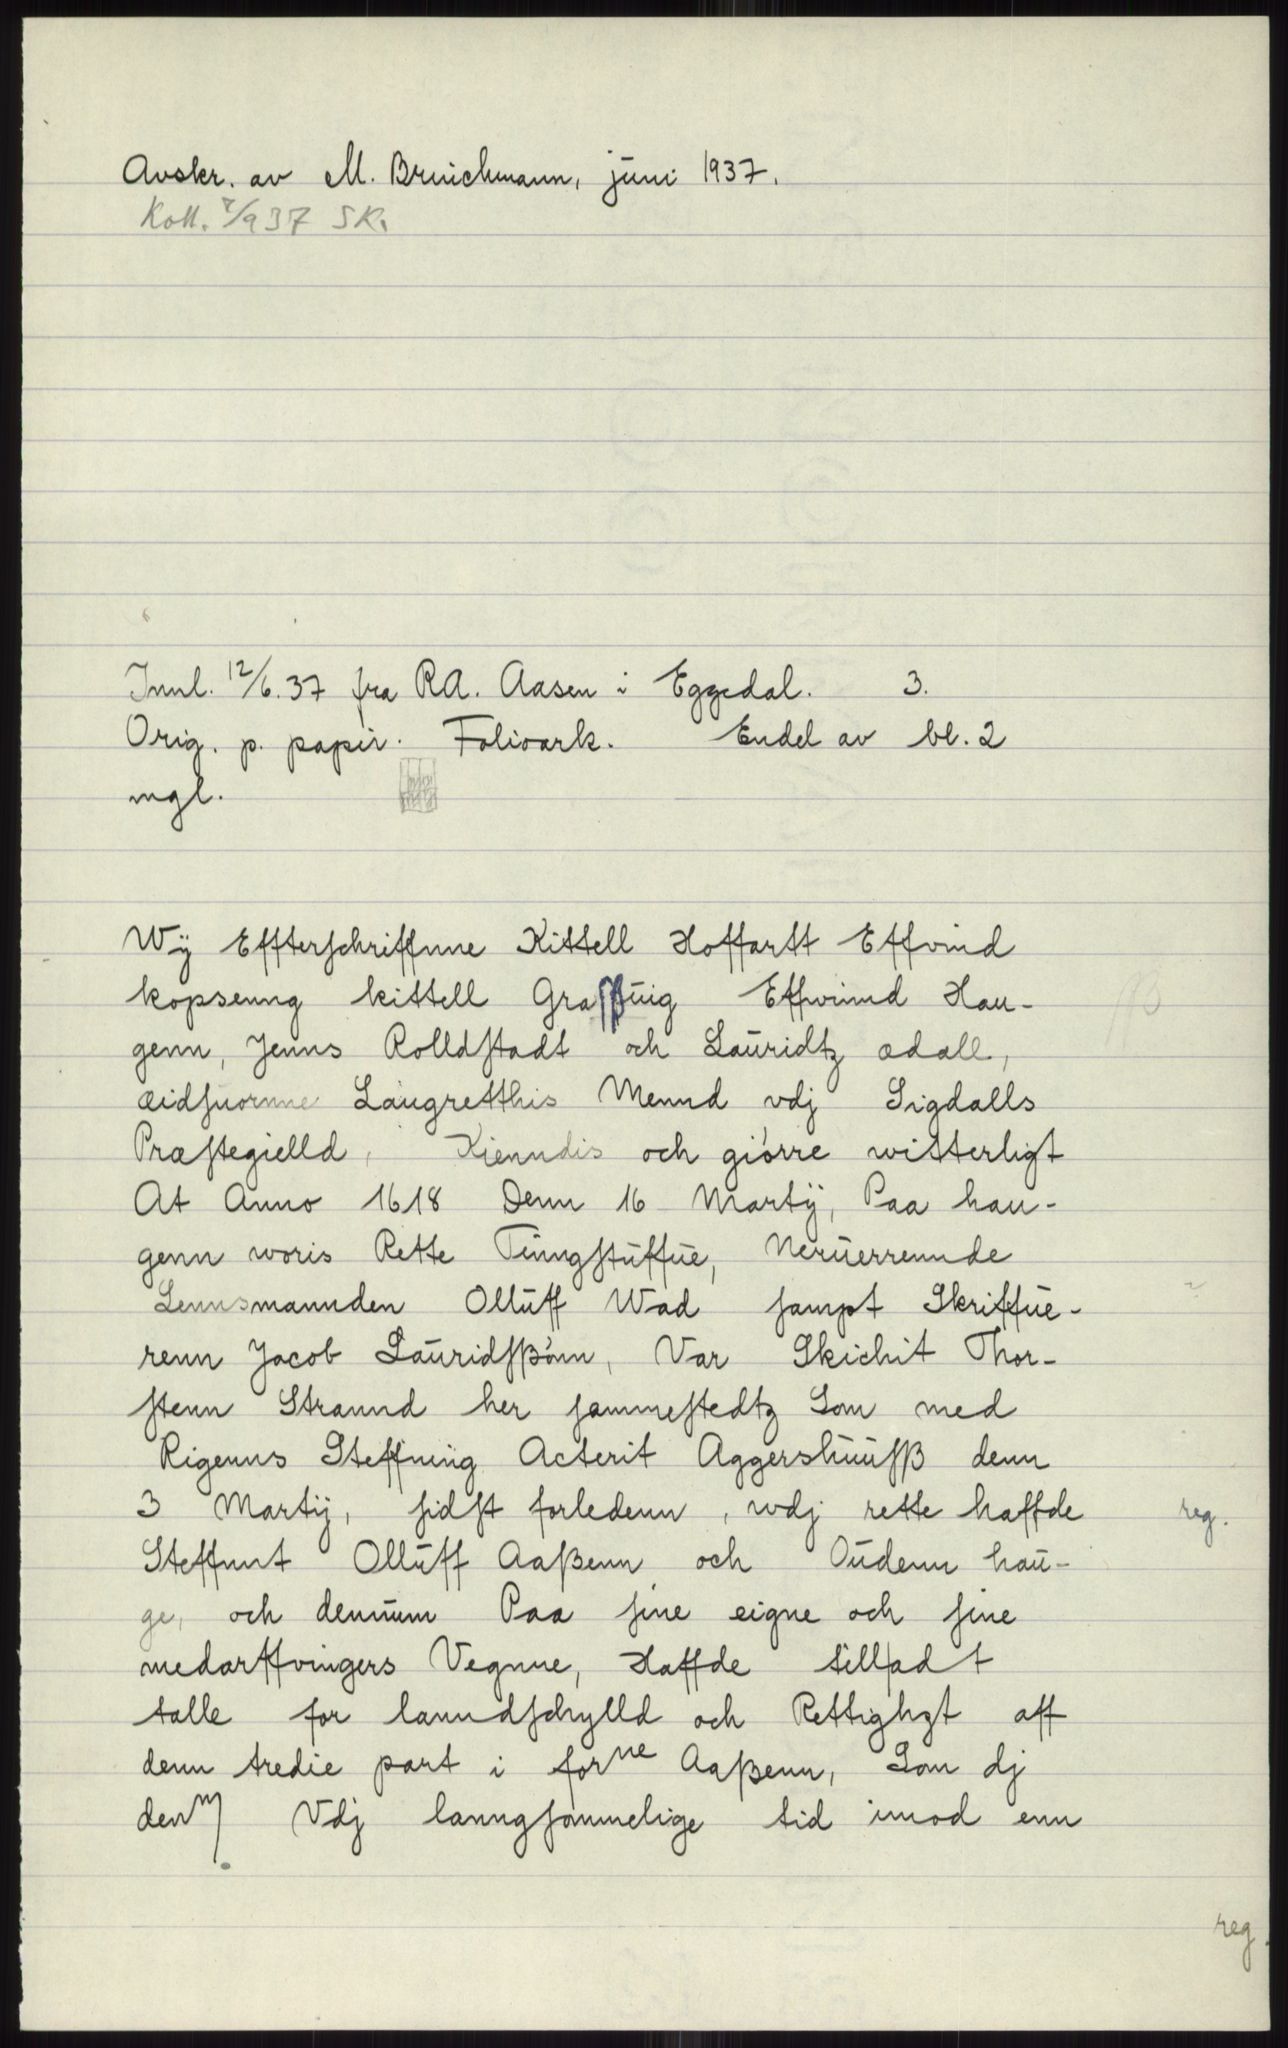 Avskr. av M. Bruichmann, juni 1937.
Koll. 7/937 SK.
Innl. 12/6.37 fra RA. Aasen i Eggedal. 3.
Orig. p. papir. Folioark. Endel av bl. 2
mgl.
Wÿ Effterſchriffnne Kittell Hoffartt Effvind
kopsenng kittell Graſſuig Effwinnd Hau-
genn, Jenns Rolldſtadt och Lauridtz adall,
æidſuornne Laugretthis Mennd vdj Sigdalls
Præſtegielld, Kienndis och giörre witterligt
At Anno 1618 Denn 16 Martÿ, Paa hau-
genn woris Rette Tinngſtuffue, Neruerrennde
Lennsmannden Olluff Wad ſampt Skriffue-
renn Jacob Lauridſßönn, Var Skichit Thor-
ſtenn Strannd her ſammeſtedtz Som med
Rigenns Steffning Acterit Aggershuuſß denn
3 Martÿ, ſidſt forledenn, wdj rette haffde reg.
Steffnnt Olluff Aaßenn och Oudenn hau-
ge, och dennum Paa ſine eigne och ſine
medarffvingers Vegnne, Haffde tillſadt
talle for lanndſchylld och Rettighgt aff
denn tredie part i forne Aaßenn, Som dj
denm Vdj lanngſommelige tid imod enn
reg.